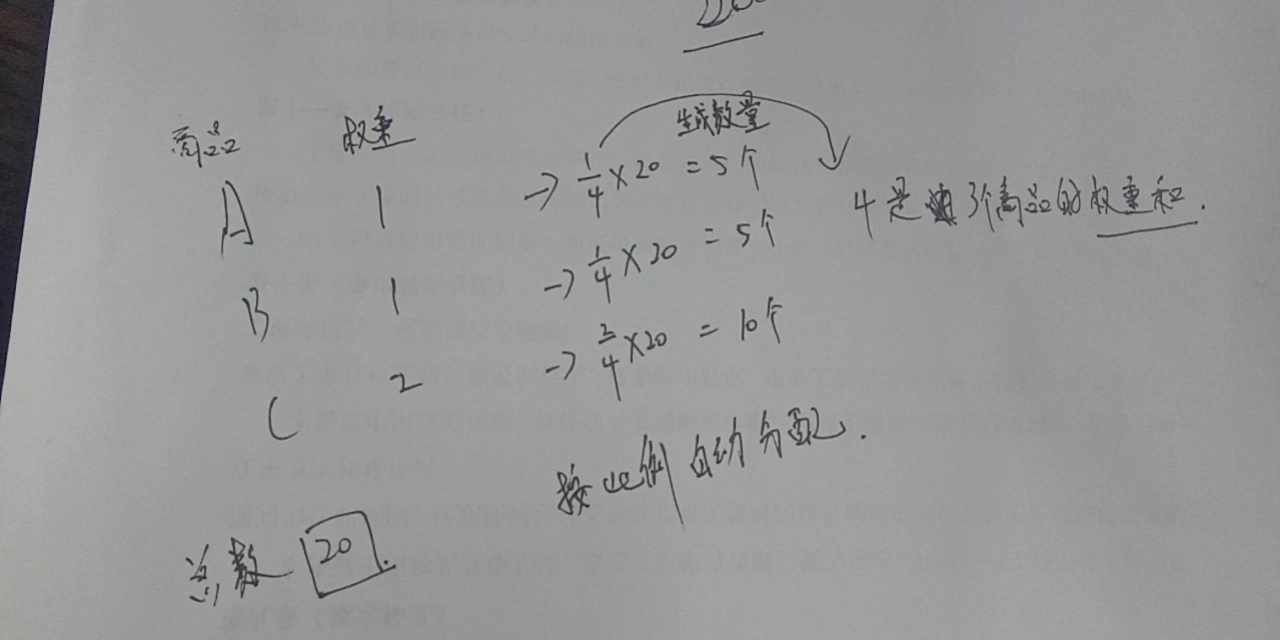 商品 权重 生成数量
A 1 → 1/4 × 20 = 5个 4是3个商品的权重和.
B 1 → 1/4 × 20 = 5个
C 2 → 2/4 × 20 = 10个
按比例自动分配.
总数 20.